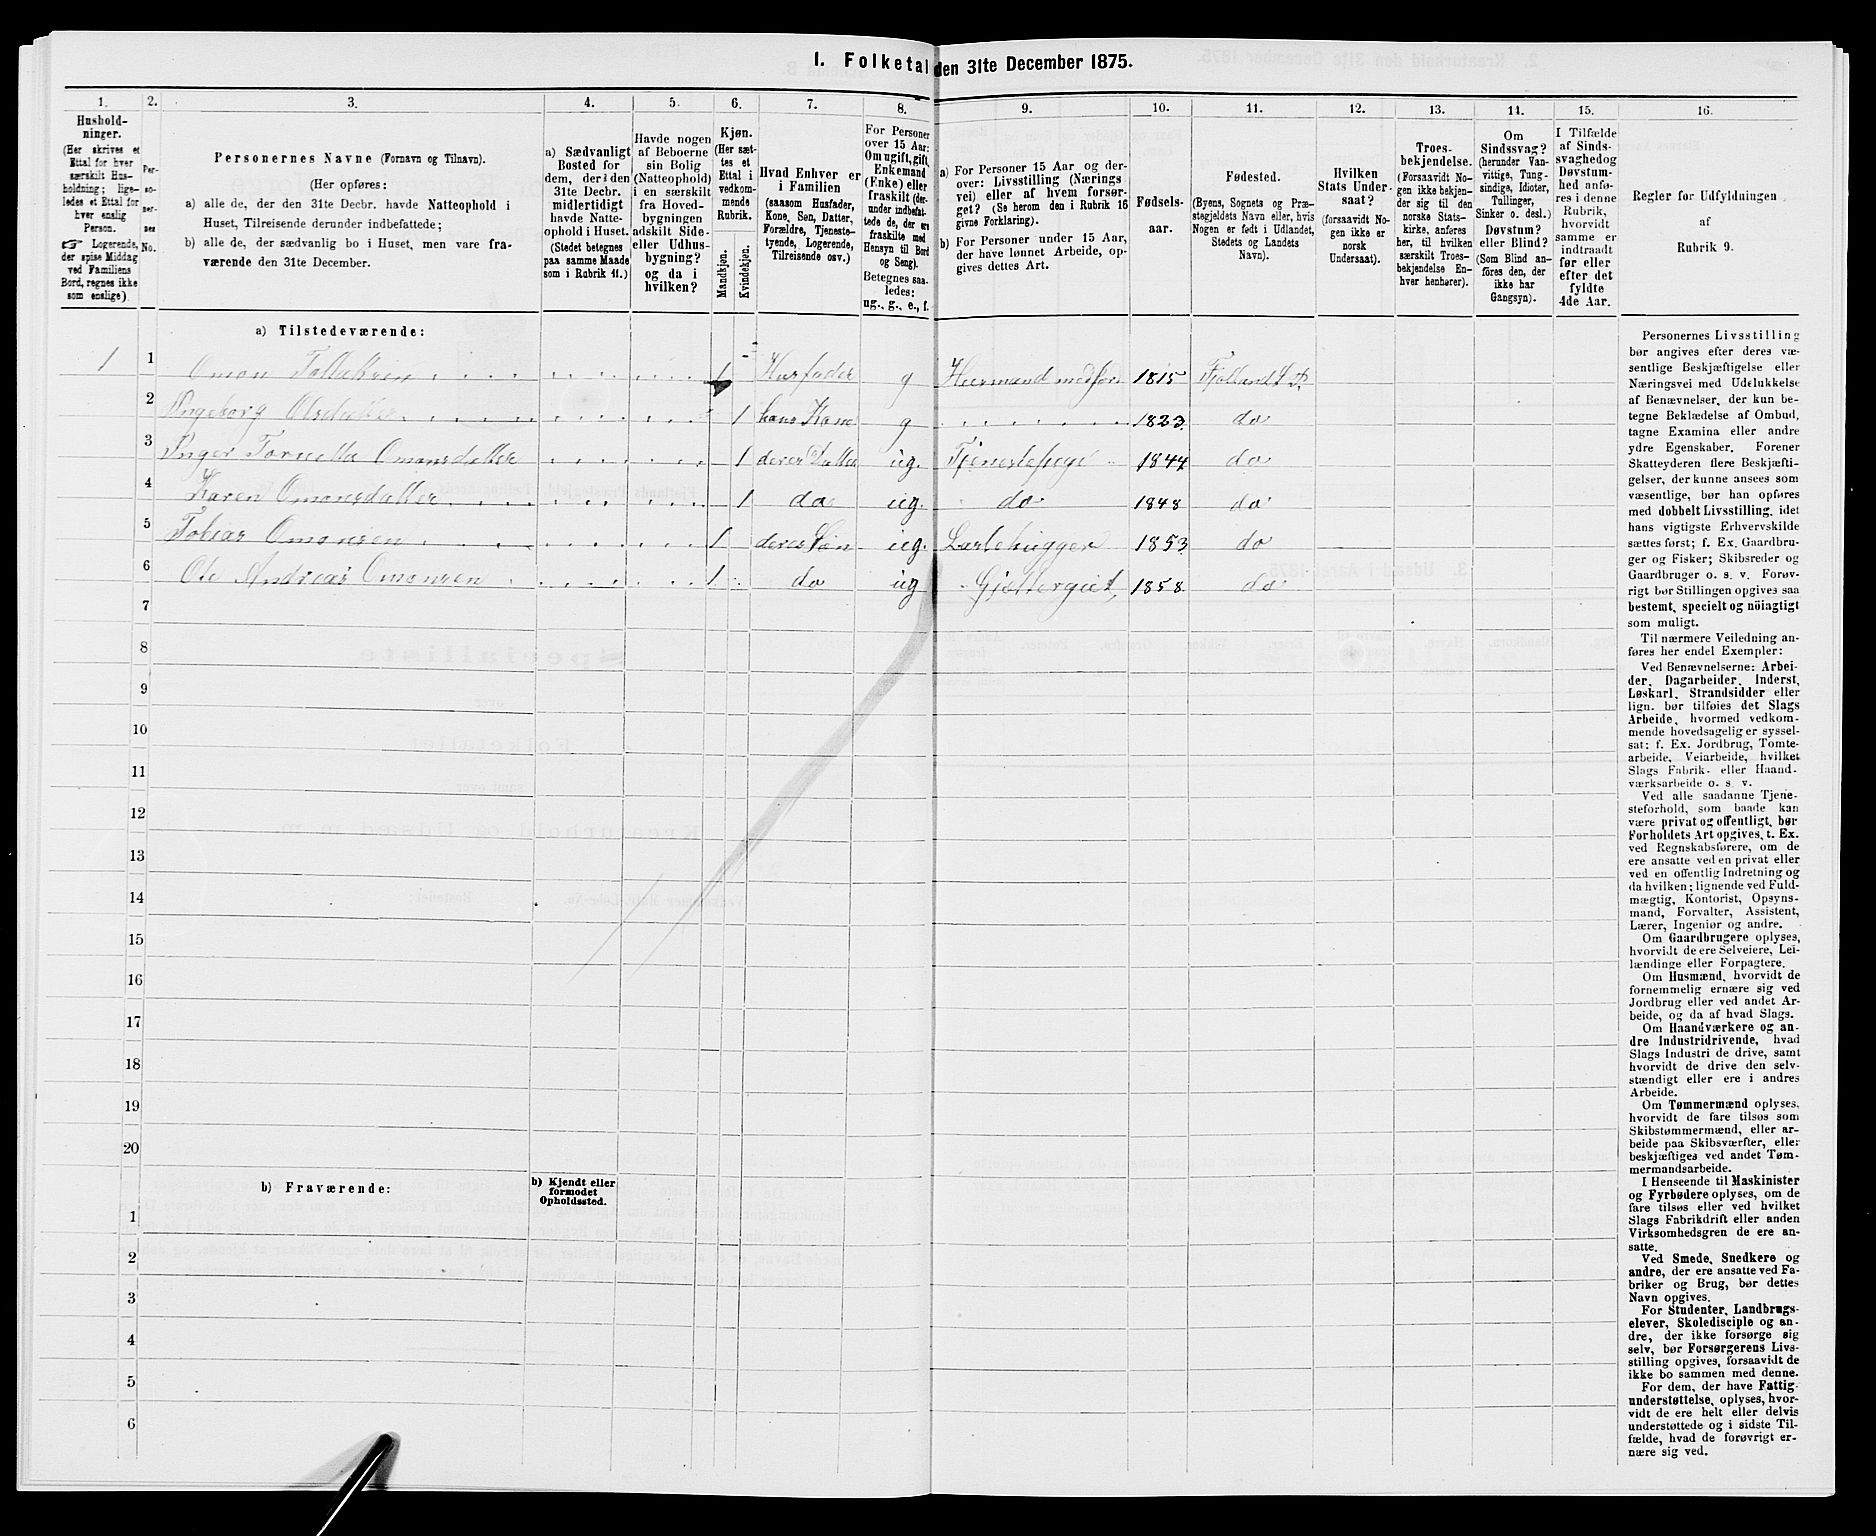 I. Folketal den 31te December 1875.
1. 2. 3. 4. 5. 6. 7. 8. 9. 10. 11. 12. 13. 14. 15. 16.
Hushold-
ninger.
(Her skrives et
Ettal for hver
særskilt Hus-
holdning; lige-
ledes et Ettal for
hver enslig
Person.
Logerende,
der spise Middag
ved Familiens
Bord, regnes ikke
som enslige).
Per-
so-
ner-
nes
No.
Personernes Navne (Fornavn og Tilnavn).
(Her opføres:
a) alle de, der den 31te Decbr. havde Natteophold i
Huset, Tilreisende derunder indbefattede;
b) alle de, der sædvanlig bo i Huset, men vare fra-
værende den 31te December.
a) Sædvanligt
Bosted for
dem, der i den
31te Decbr.
midlertidigt
havde Natte-
ophold i Huset.
(Stedet betegnes
paa samme Maade
som i Rubrik 11.)
Havde nogen
af Beboerne
sin Bolig
(Natteophold)
i en særskilt
fra Hoved-
bygningen
adskilt Side-
eller Udhus-
bygning?
og da i
hvilken?
Kjøn.
(Her sæt-
tes et
Ettal i
vedkom-
mende
Rubrik.
Mandkjøn.
Kvindekjøn.
Hvad Enhver er
i Familien
(saasom Husfader,
Kone, Søn, Datter,
Forældre, Tjeneste-
tyende, Logerende,
Tilreisende osv.)
For Personer
over 15 Aar:
Om ugift, gift,
Enkemand
(Enke) eller
fraskilt (der-
under indbefat-
tede de, der ere
fraskilte med
Hensyn til Bord
og Seng).
Betegnes saa-
ledes:
ug., g., e., f.
a) For Personer 15 Aar og der-
over: Livsstilling (Nærings
vei) eller af hvem forsør-
get? (Se herom den i Rubrik 16
givne Forklaring).
b) For Personer under 15 Aar,
der have lønnet Arbeide, op-
gives dettes Art.
Fødsels-
aar.
Fødested.
(Byens, Sognets og Præ-
stegjeldets Navn eller, hvis
Nogen er født i Udlandet,
Stedets og Landets
Navn).
Hvilken
Stats Under-
saat?
(forsaavidt No-
gen ikke er
norsk
Undersaat).
Troes-
bekjendelse.
(Forsaavidt No-
gen ikke bekjen-
der sig til den
norske Stats-
kirke, anføres
her, til hvilken
særskilt Troes-
bekjendelse En-
hver henhører).
Om
Sindssvag?
(herunder Van-
vittige, Tung-
sindige, Idioter,
Tullinger,
Sinker o. desl.)
Døvstum?
eller Blind?
(Som Blind an-
føres den, der
ikke har
Gangsyn).
I Tilfælde
af Sinds-
svaghedog
Døvstum-
hed anfø-
res i denne
Rubrik,
hvorvidt
samme er
indtraadt
før eller
efter det
fyldte
4de Aar.
Regler for Udfyldningen
af
Rubrik 9.
a) Tilstedeværende:
1 1 Omon Tallaksen 1 Husfader g Huusmand med Jord 1815 Fjotland
2 Ingeborg Olsdatter 1 hans Kone g 1823 do
3 Inger Omonsdatter 1 deres Datter ug. Tjenestepige 1844 do
4 Karen Omonsdatter 1 do ug. do 1848 do
5 Tobias Omonsen 1 deres Søn ug. 1853 do
6 Ole Andreas Omonsen 1 do ug Gjettergut 1858 do
7
8
9
10
11
12
13
14
15
16
17
18
19
20
b) Fraværende:
b) Kjendt eller
formodet
Opholdssted.
1
2
3
4
5
6
Personernes Livsstilling
bør angives efter deres væ-
sentlige Beskjæftigelse eller
Næringsvei med Udelukkelse
af Benævnelser, der kun be-
tegne Beklædelse af Ombud,
tagne Examina eller andre
ydre Egenskaber. Forener
Skatteyderen flere Beskjæfti-
gelser, der kunne ansees som
væsentlige, bør han opføres
med dobbelt Livsstilling, idet
hans vigtigste Erhvervskilde
sættes først; f. Ex. Gaardbru-
ger og Fisker; Skibsreder og
Gaardbruger o. s. v. Forøv-
rigt bør Stillingen opgives saa
bestemt, specielt og nöiagtigt
som muligt.
Til nærmere Veiledning an-
føres her endel Exempler:
Ved Benævnelserne: Arbei-
der, Dagarbeider, Inderst,
Løskarl, Strandsidder eller
lign. bør tilføies det Slags
Arbeide, hvormed vedkom-
mende hovedsagelig er syssel-
sat: f. Ex. Jordbrug, Tomte-
arbeide, Veiarbeide, hvilket
Slags Fabrik- eller Haand-
værksarbeide o. s. v.
Ved alle saadanne Tjene-
steforhold, som baade kan
være privat og offentligt, bør
Forholdets Art opgives, t. Ex.
ved Regnskabsførere, om de
ere ansatte ved en privat eller
ved en offentlig Indretning og
da hvilken; lignende ved Fuld-
mægtig, Kontorist, Opsyns-
mand, Forvalter, Assistent,
Lærer, Ingeniør og andre.
Om Gaardbrugere oplyses,
hvorvidt de ere Selveiere, Lei-
lændinge eller Forpagtere.
Om Husmænd, hvorvidt de
fornemmelig ernære sig ved
Jordbrug eller ved andet Ar-
beide, og da af hvad Slags.
Om Haandværkere og an-
dre Industridrivende, hvad
Slags Industri de drive, samt
hvorvidt de drive den selv-
stændigt eller ere i andres
Arbeide.
Om Tømmermænd oplyses,
hvorvidt de fare tilsøs som
Skibstømmermænd, eller ar-
beide paa Skibsværfter, eller
beskjæftiges ved andet Tøm-
mermandsarbeide.
I Henseende til Maskinister
og Fyrbødere oplyses, om de
fare tilsøs eller ved hvilket
Slags Fabrikdrift eller anden
Virksomhedsgren de ere an-
satte.
Ved Smede, Snedkere og
andre, der ere ansatte ved Fa-
briker og Brug, bør dettes
Navn opgives.
For Studenter, Landbrugs-
elever, Skoledisciple og an-
dre, der ikke forsørge sig
selv, bør Forsørgerens Livs-
stilling opgives, forsaavidt de
ikke bo sammen med denne.
For dem, der have Fattig-
understøttelse, oplyses, hvor-
vidt de ere helt eller delvis
understøttede og i sidste Til-
fælde, hvad de forøvrigt er-
nære sig ved.